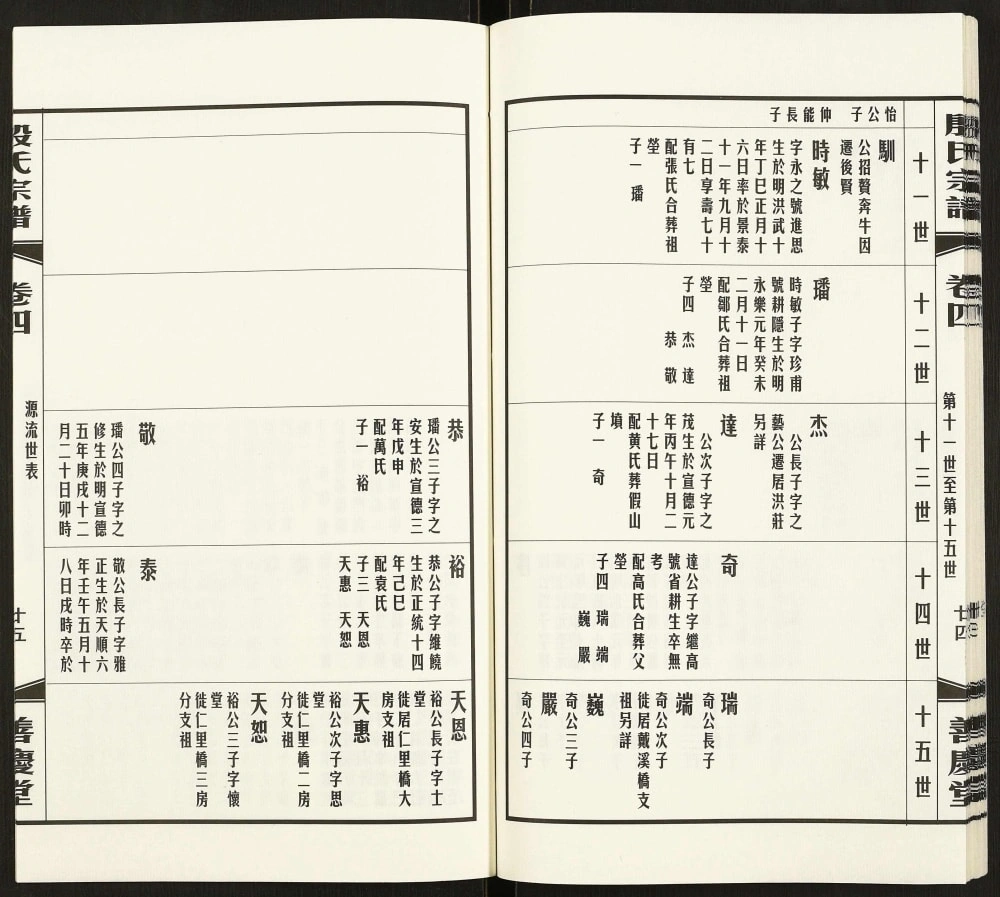 殷氏宗譜
卷四
第十一世至第十五世
廿四
善慶堂
十一世
怡公子
仲能長子
馴
公招贅奔牛因
遷後賢
時敏
字永之號進思
生於明洪武十
年丁巳正月十
六日率於景泰
十一年九月十
二日享壽七十
有七
配張氏合葬祖
塋
子一 璠
十二世
璠
時敏子字珍甫
號耕隱生於明
永樂元年癸未
二月十一日
配鄒氏合葬祖
塋
子四 杰 達
恭 敬
十三世
杰
公長子字之
藝公遷居洪莊
另詳
達
公次子字之
茂生於宣德元
年丙午十月二
十七日
配黄氏葬假山
墳
子一 奇
十四世
奇
達公子字繼高
號省耕生卒無
考
配高氏合葬父
塋
子四 瑞 端
巍 嚴
十五世
瑞
奇公長子
端
奇公次子
徙居戴溪橋支
祖另詳
巍
奇公三子
嚴
奇公四子
恭
璠公三子字之
安生於宣德三
年戊申
配萬氏
子一 裕
敬
璠公四子字之
修生於明宣德
五年庚戌十二
月二十日卯時
裕
恭公子字維饒
生於正統十四
年己巳
配袁氏
子三 天恩
天惠 天恕
泰
敬公長子字雅
正生於天順六
年壬午五月十
八日戌時卒於
天恩
裕公長子字士
堂
徙居仁里橋大
房支祖
天惠
裕公次子字思
堂
徙仁里橋二房
分支祖
天恕
裕公三子字懷
堂
徙仁里橋三房
分支祖
殷氏宗譜
卷四
源流世表
廿五
善慶堂